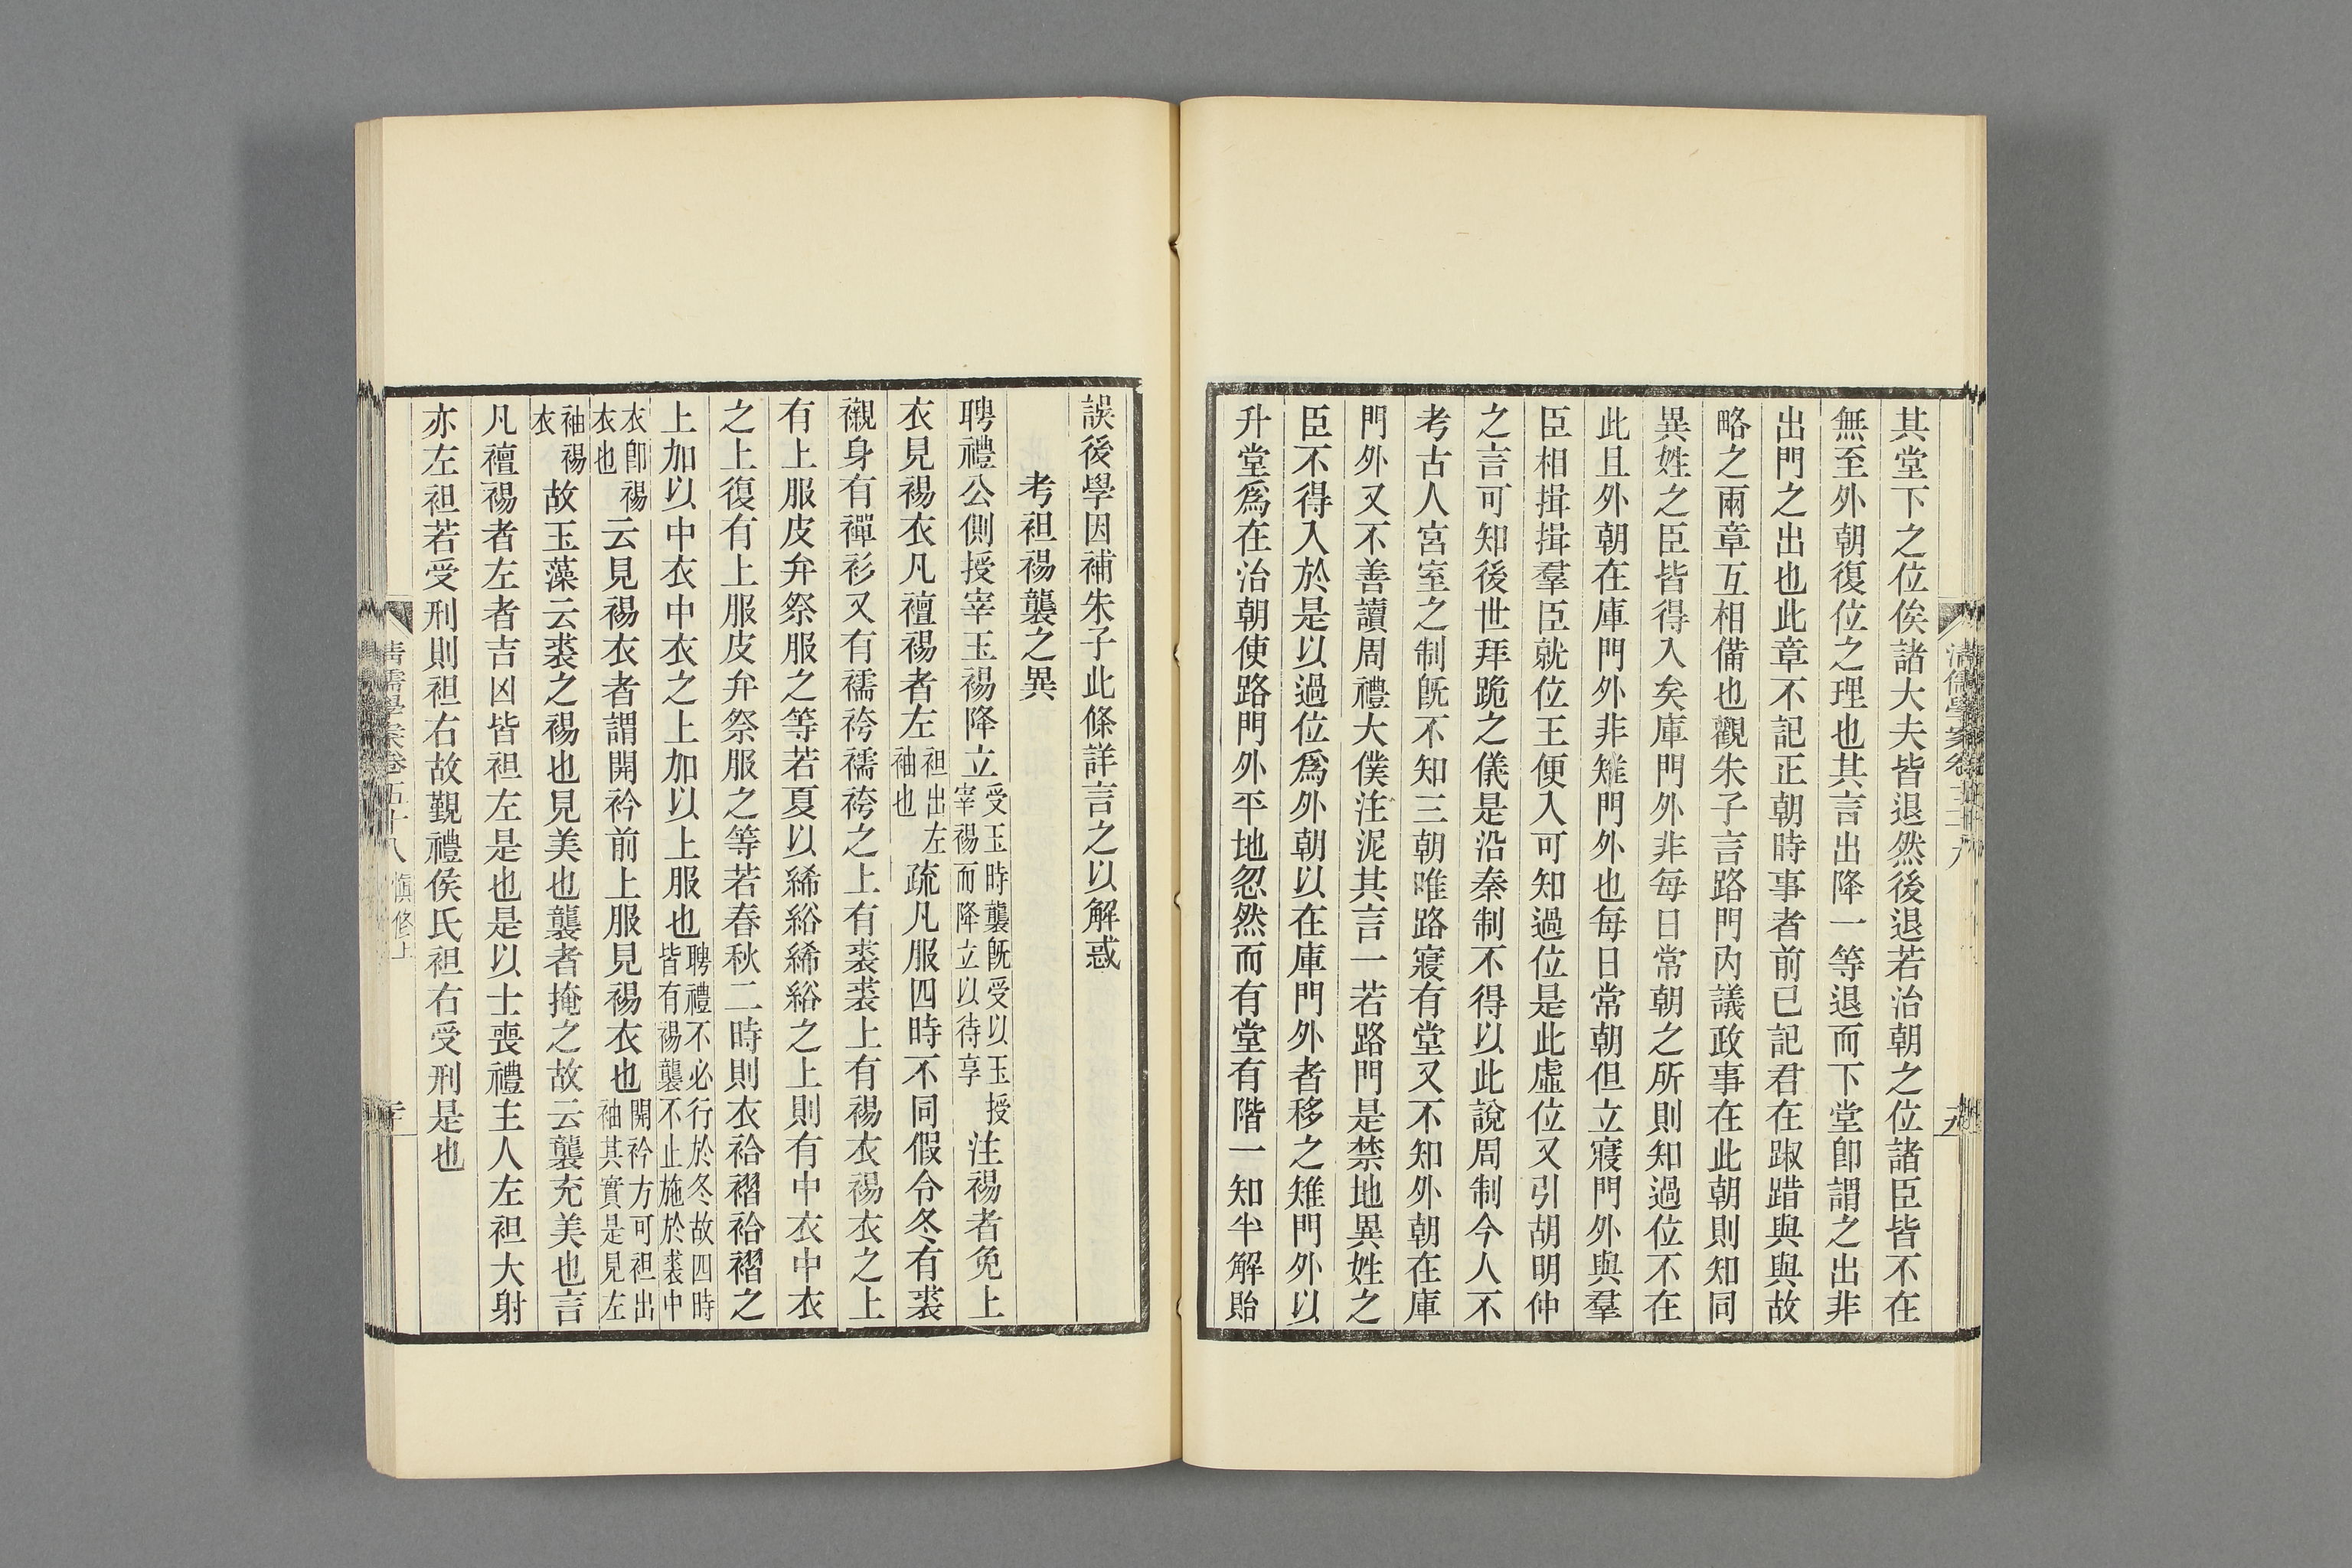 其堂下之位俟諸大夫皆退然後退若治朝之位諸臣皆不在
無至外朝復位之理也其言出降一等退而下堂卽謂之出非
出門之出也此章不記正朝時事者前已記君在踧踖與與故
略之兩章互相備也觀朱子言路門內議政事在此朝則知同
異姓之臣皆得入矣庫門外非每日常朝之所則知過位不在
此且外朝在庫門外非雉門外也每日常朝但立寢門外與羣
臣相揖揖羣臣就位王便入可知過位是此虛位又引胡明仲
之言可知後世拜跪之儀是沿秦制不得以此說周制今人不
考古人宮室之制旣不知三朝唯路寢有堂又不知外朝在庫
門外又不善讀周禮大僕注泥其言一若路門是禁地異姓之
臣不得入於是以過位爲外朝以在庫門外者移之雉門外以
升堂爲在治朝使路門外平地忽然而有堂有階一知半解貽
誤後學因補朱子此條詳言之以解惑
考袒裼襲之異
聘禮公側授宰玉裼降立受玉時襲旣受以玉授宰裼而降立以待享注裼者免上
衣見裼衣凡襢裼者左袒出左袖也疏凡服四時不同假令冬有裘
襯身有禪衫又有襦袴襦袴之上有裘裘上有裼衣裼衣之上
有上服皮弁祭服之等若夏以絺綌絺綌之上則有中衣中衣
之上復有上服皮弁祭服之等若春秋二時則衣袷褶袷褶之
上加以中衣中衣之上加以上服也聘禮不必行於冬故四時皆有裼襲不止施於裘中
衣卽裼衣也云見裼衣者謂開衿前上服見裼衣也開衿方可袒出袖其實是見左
袖裼衣故玉藻云裘之裼也見美也襲者掩之故云襲充美也言
凡襢裼者左者吉凶皆袒左是也是以士喪禮主人左袒大射
亦左袒若受刑則袒右故覲禮侯氏袒右受刑是也
清儒學案卷五十八 愼修上